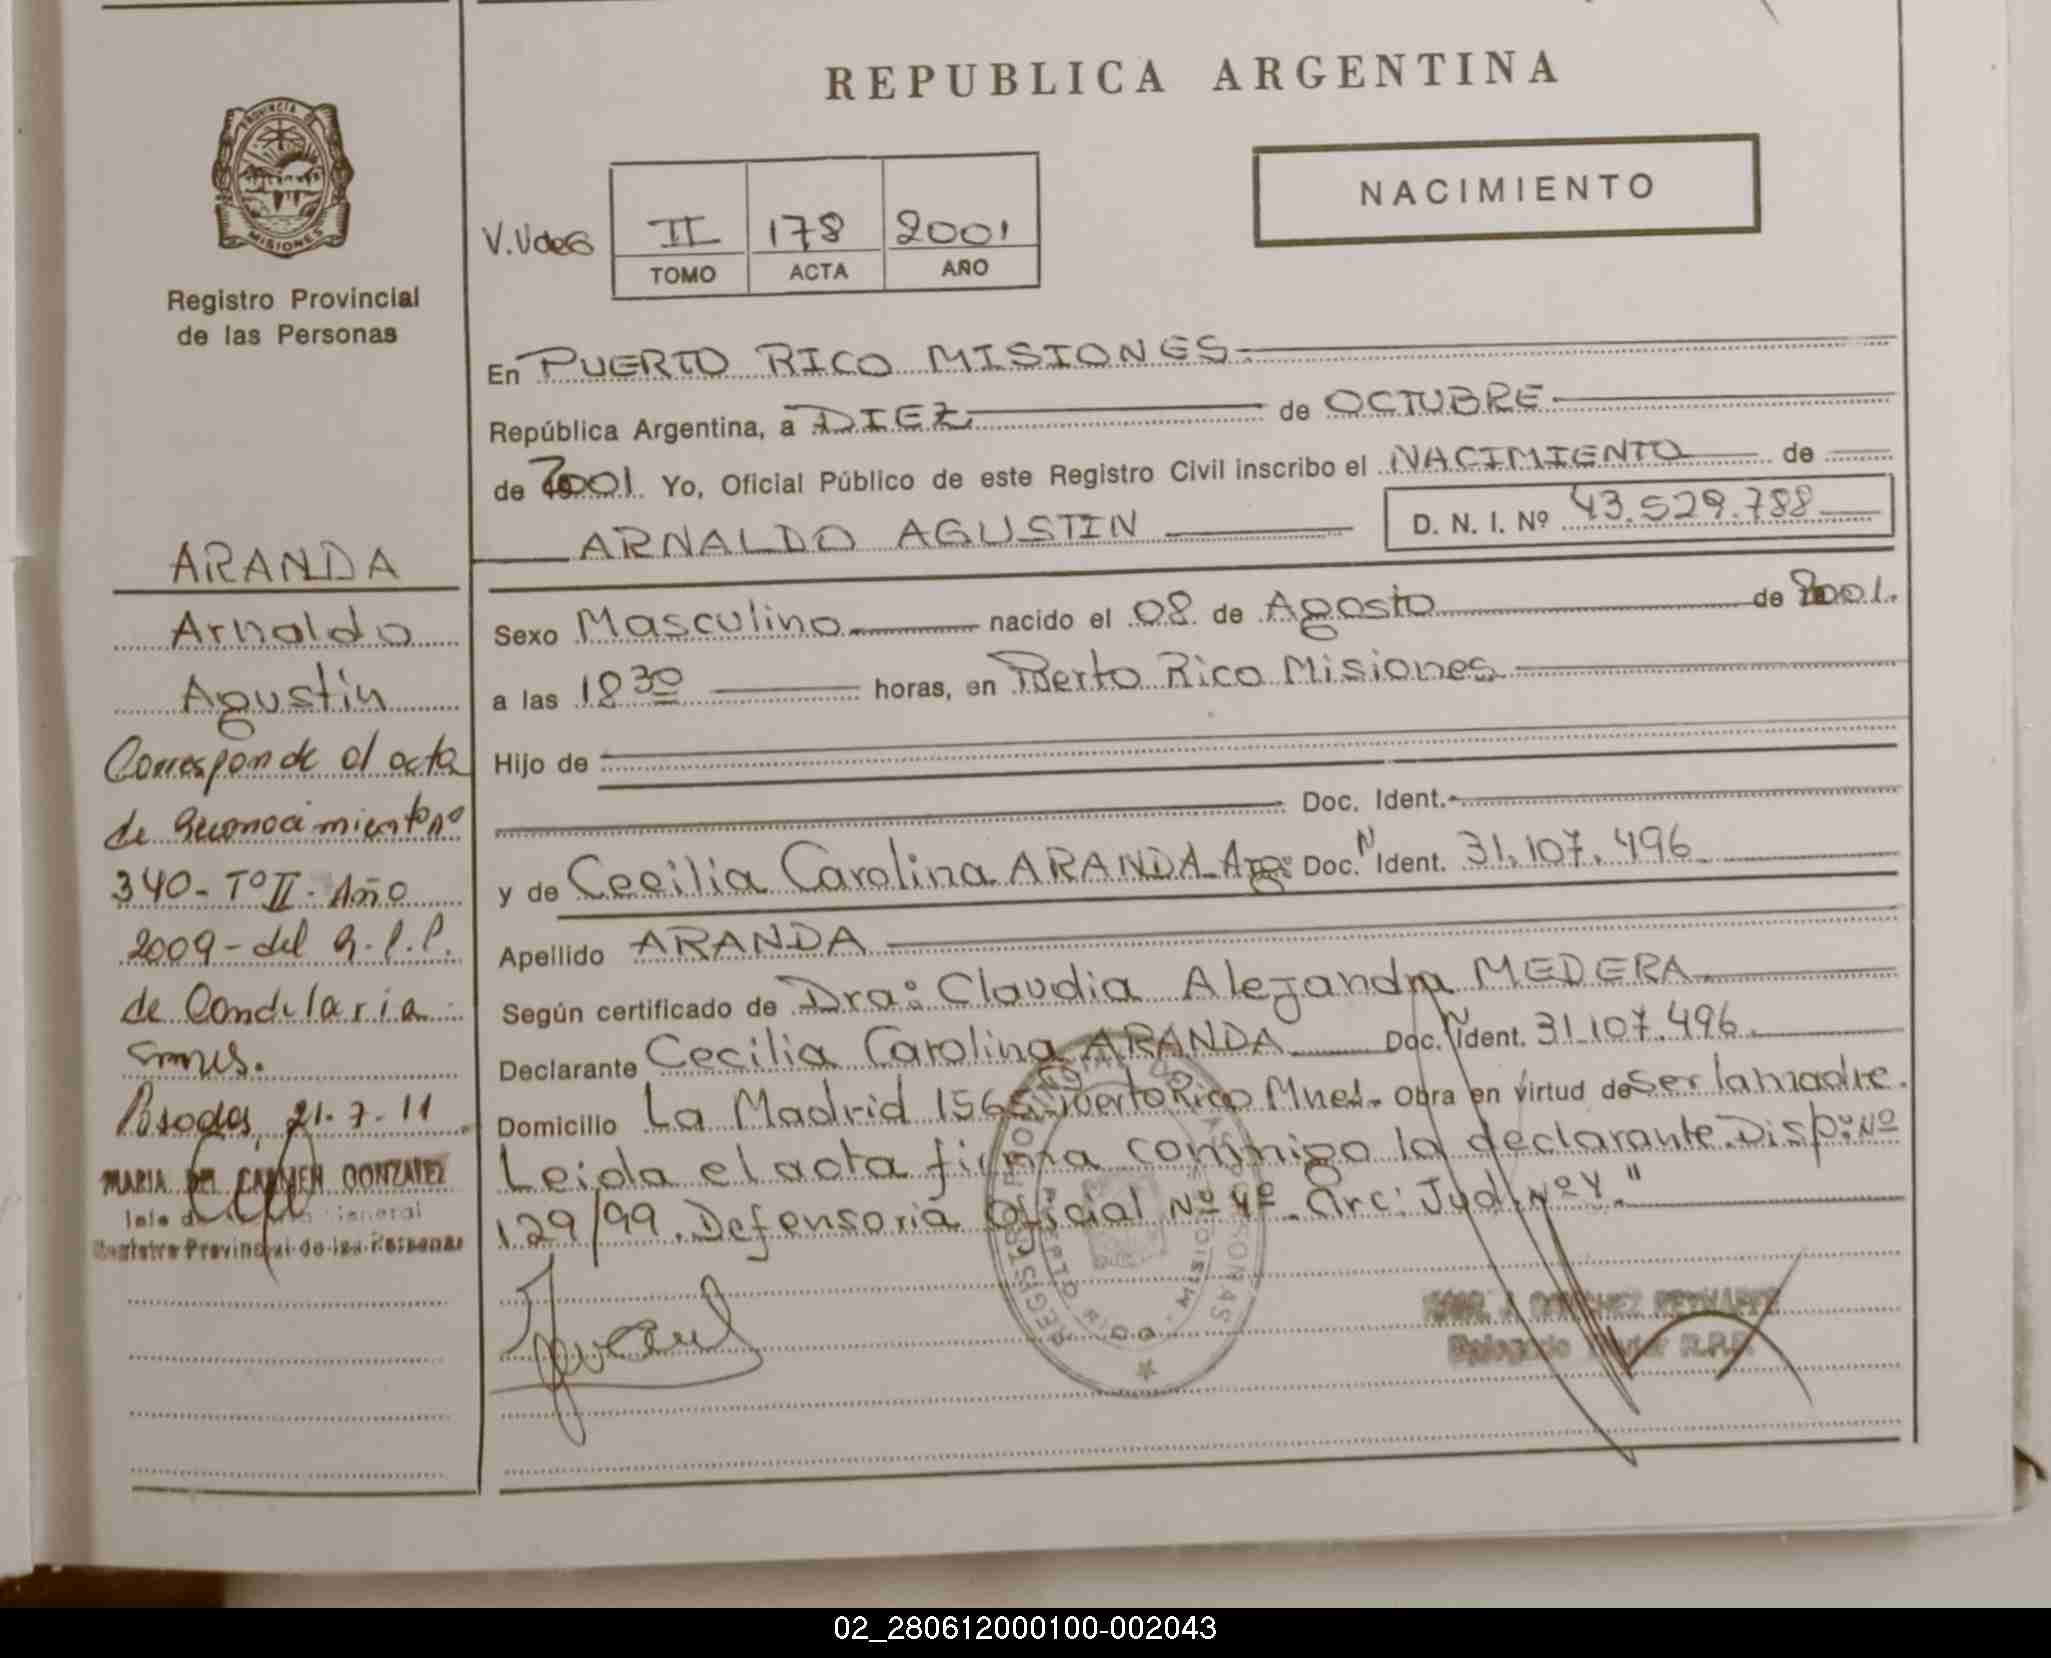 REPUBLICA ARGENTINA
PROVINCIA DE
MISIONES
Registro Provincial
de las Personas
NACIMIENTO
II 178 2001
TOMO ACTA AÑO
En PUERTO RICO MISIONES
República Argentina, a DIEZ de OCTUBRE
de 2001. Yo, Oficial Público de este Registro Civil inscribo el NACIMIENTO de
ARNALDO AGUSTIN D. N. I. Nº 43.529.788
Sexo Masculino nacido el 08 de Agosto de 2001.
a las 18 30 horas, en Puerto Rico Misiones
Hijo de
Doc. Ident.
y de Cecilia Carolina ARANDA Arg: Doc. N Ident. 31.107.496
Apellido ARANDA
Según certificado de Dra: Claudia Alejandra MEDERA
Declarante Cecilia Carolina ARANDA Doc. N Ident. 31.107.496.
Domicilio La Madrid Puerto Rico Mnes. Obra en virtud de Ser la madre.
Leida el acta firma conmigo la declarante. Disp: Nº
129/99. Defensoria Oficial Nº 4º. Circ: Jud. Nº 4"
ARANDA
Arnaldo
Agustin
Corresponde al acta
de Reconocimiento nº
340 - Tº II - Año
2009 - del R.P.P.
de Candelaria
Smnes.
Posadas, 21-7-11
MARIA DEL CARMEN GONZALEZ
General
Registro Provincial de las Personas
REGISTRO PROVINCIAL DE LAS PERSONAS
PUERTO RICO - MISIONES
Delegado Titular R.P.P.
02_280612000100-002043